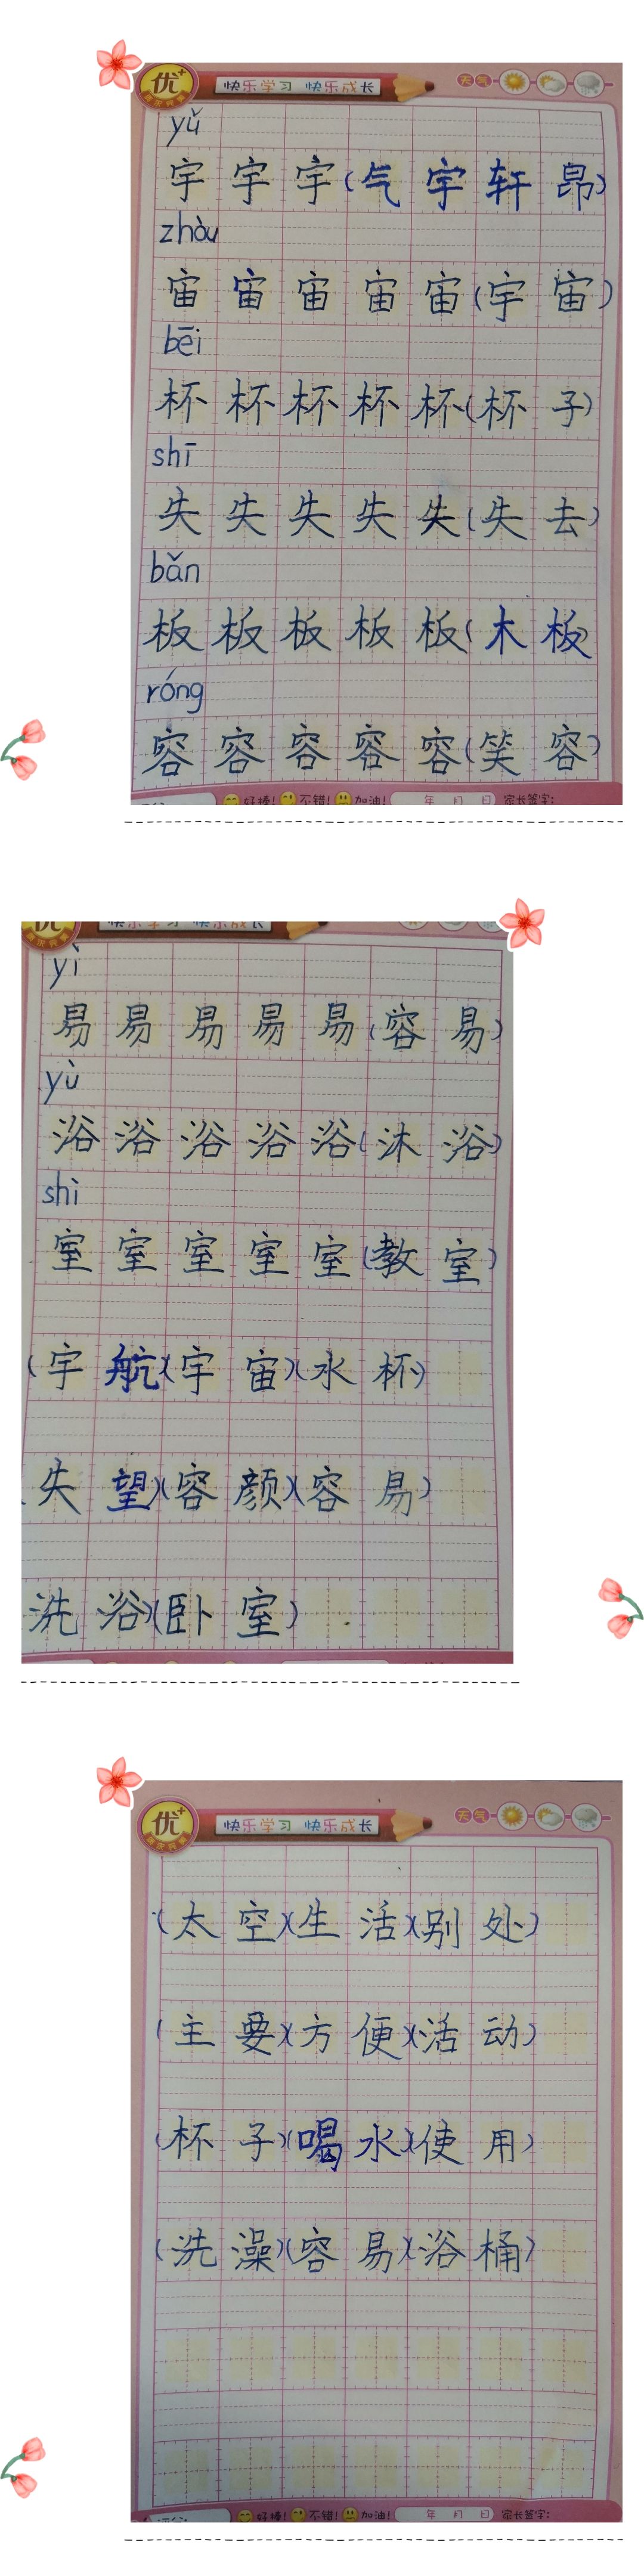 优+
快乐学习 快乐成长
天气
yǔ
宇宇宇(气宇轩昂)
zhòu
宙宙宙宙宙(宇宙)
bēi
杯杯杯杯杯(杯子)
shī
失失失失失(失去)
bǎn
板板板板板(木板)
róng
容容容容容(笑容)
好棒! 不错! 加油! 年 月 日 家长签字:
优
快乐学习 快乐成长
yì
易易易易易(容易)
yù
浴浴浴浴浴(沐浴)
shì
室室室室室(教室)
(宇航)(宇宙)(水杯)
失望)(容颜)(容易)
洗浴)(卧室)
优+
快乐学习 快乐成长
天气
(太空)(生活)(别处)
(主要)(方便)(活动)
(杯子)(喝水)(使用)
(洗澡)(容易)(浴桶)
好棒! 不错! 加油! 年 月 日 家长签字: